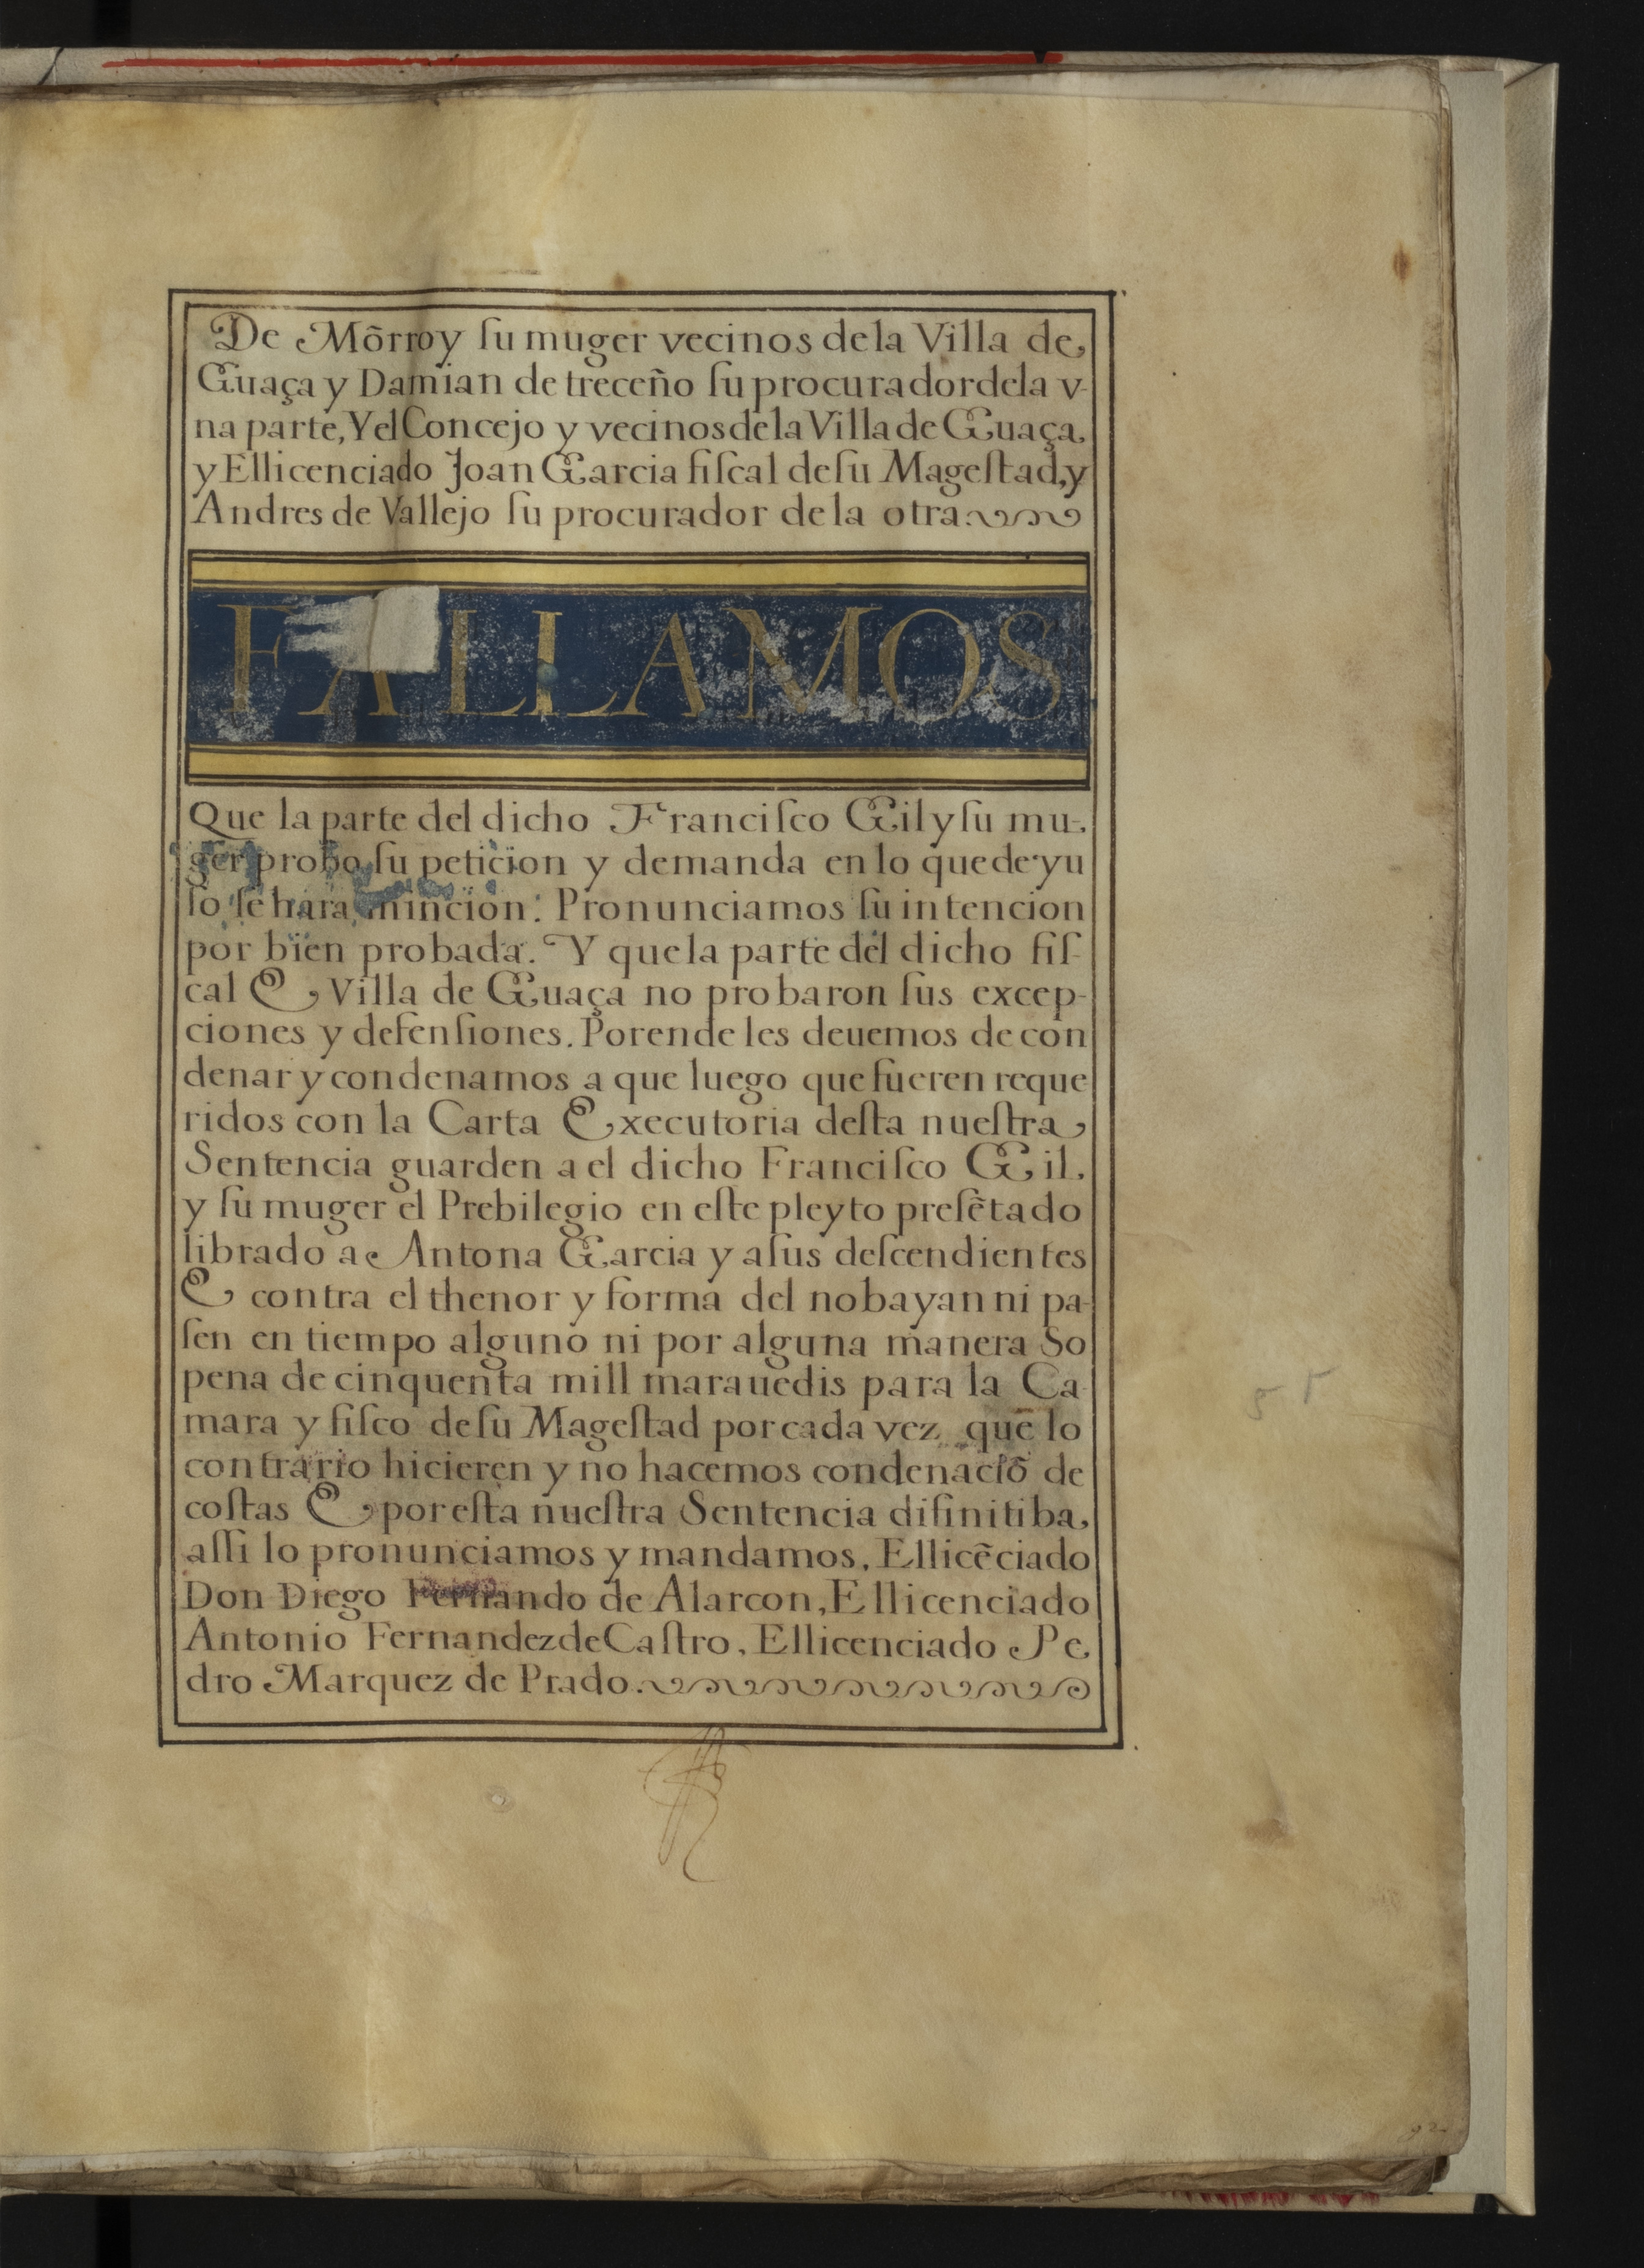 De Mõrroy ſu muger vecinos de la Villa de
Guaça y Damian de treceño ſu procurador dela v-
na parte, Y el Concejo y vecinos de la Villa de Guaça,
y Ellicenciado Joan Garcia fiſcal de ſu Mageſtad, y
Andres de Vallejo ſu procurador de la otra.
FALLAMOS
Que la parte del dicho Franciſco Gil y ſu mu-
ger probo ſu peticion y demanda en lo que de yu
ſo ſe hara mincion: Pronunciamos ſu intencion
por bien probada. Y que la parte del dicho fiſ-
cal E Villa de Guaça no probaron ſus excep-
ciones y defenſiones. Porende les deuemos de con
denar y condenamos a que luego que fueren reque
ridos con la Carta Executoria deſta nueſtra
Sentencia guarden a el dicho Franciſco Gil,
y ſu muger el Prebilegio en eſte pleyto preſẽtado
librado a Antona Garcia y a ſus deſcendientes
E contra el thenor y forma del no bayan ni pa-
ſen en tiempo alguno ni por alguna manera So
pena de cinquenta mill marauedis para la Ca-
mara y fiſco de ſu Mageſtad por cada vez que lo
contrario hicieren y no hacemos condenaciõ de
coſtas E por eſta nueſtra Sentencia difinitiba,
aſſi lo pronunciamos y mandamos, Ellicẽciado
Don Diego Fernando de Alarcon, Ellicenciado
Antonio Fernandez de Caſtro, Ellicenciado Pe
dro Marquez de Prado.